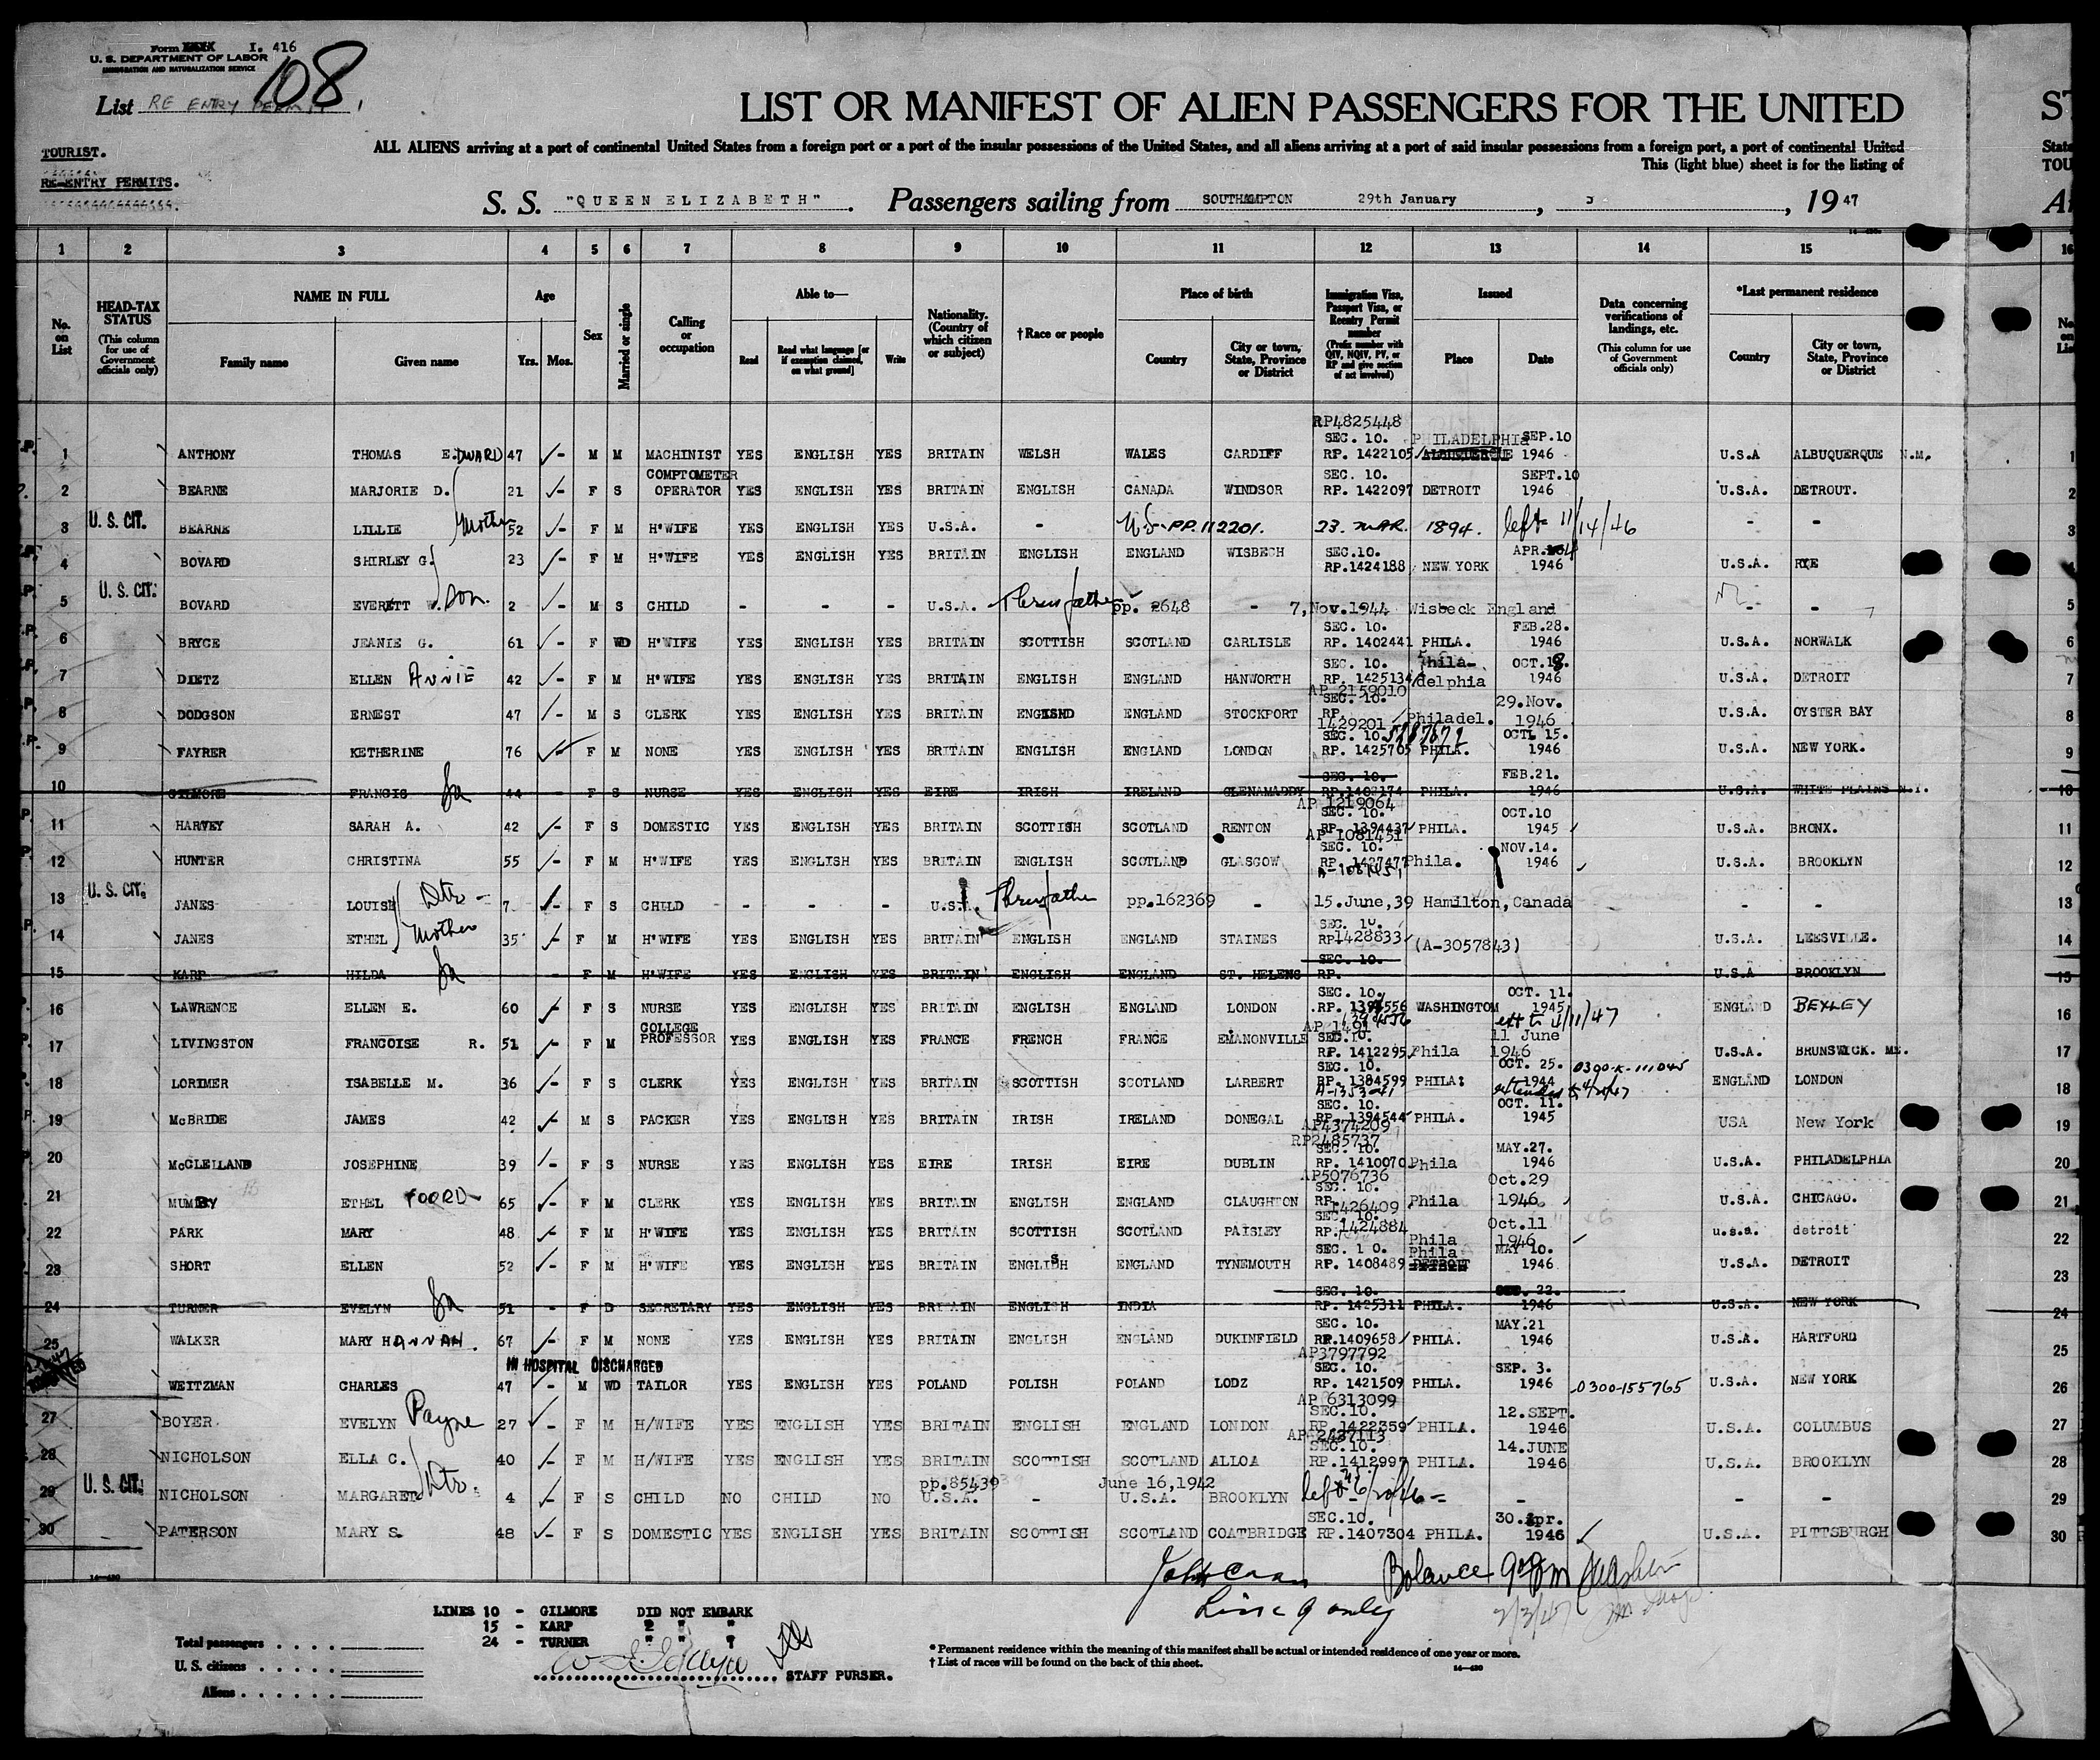 Form I. 416
U. S. DEPARTMENT OF LABOR
IMMIGRATION AND NATURALIZATION SERVICE
108
List RE ENTRY PERMIT 1
LIST OR MANIFEST OF ALIEN PASSENGERS FOR THE UNITED ST
TOURIST.
RE-ENTRY PERMITS.
ALL ALIENS arriving at a port of continental United States from a foreign port or a port of the insular possessions of the United States, and all aliens arriving at a port of said insular possessions from a foreign port, a port of continental United State
This (light blue) sheet is for the listing of TOU
S. S. "QUEEN ELIZABETH". Passengers sailing from SOUTHAMPTON 29th January, 19 47
1 2 3 4 5 6 7 8 9 10 11 12 13 14 15 16
No. on List
HEAD-TAX STATUS (This column for use of Government officials only)
NAME IN FULL Family name Given name
Age Yrs. Mos.
Sex
Married or single
Calling or occupation
Able to— Read Read what language [or if exemption claimed, on what ground] Write
Nationality. (Country of which citizen or subject)
†Race or people
Place of birth Country City or town, State, Province or District
Immigration Visa, Passport Visa, or Reentry Permit number (Prefix number with QIV, NQIV, PV, or RP and give section of act involved)
Issued Place Date
Data concerning verifications of landings, etc. (This column for use of Government officials only)
*Last permanent residence Country City or town, State, Province or District
RP4825448
SEC. 10. PHILADELPHIA SEP.10
1 ANTHONY THOMAS EDWARD 47 - M M MACHINIST YES ENGLISH YES BRITAIN WELSH WALES CARDIFF RP. 1422105 ALBUQUERQUE 1946 U.S.A ALBUQUERQUE N.M. 1
COMPTOMETER SEC. 10. SEPT.10
2 BEARNE MARJORIE D. 21 - F S OPERATOR YES ENGLISH YES BRITAIN ENGLISH CANADA WINDSOR RP. 1422097 DETROIT 1946 U.S.A. DETROUT. 2
3 U.S. CIT. BEARNE LILLIE Mother 52 - F M H'WIFE YES ENGLISH YES U.S.A. - US PP.112201. 23. MAR. 1894. left 11/14/46 - - 3
SEC.10. APR.
4 BOVARD SHIRLEY G. 23 - F M H'WIFE YES ENGLISH YES BRITAIN ENGLISH ENGLAND WISBECH RP.1424188 NEW YORK 1946 U.S.A. RYE 4
5 U.S. CIT. BOVARD EVERETT W. Son. 2 - M S CHILD - - - U.S.A. Thru father pp. 2648 - 7,Nov.1944 Wisbeck England - - 5
SEC. 10. FEB.28.
6 BRYCE JEANIE G. 61 - F WD H'WIFE YES ENGLISH YES BRITAIN SCOTTISH SCOTLAND CARLISLE RP. 1402441 PHILA. 1946 U.S.A. NORWALK 6
SEC. 10. Phila- OCT.18.
7 DIETZ ELLEN ANNIE 42 - F M H'WIFE YES ENGLISH YES BRITAIN ENGLISH ENGLAND HANWORTH RP. 1425134 delphia 1946 U.S.A. DETROIT 7
AP 2159010
SEC. 10. 29.Nov.
8 DODGSON ERNEST 47 - M S CLERK YES ENGLISH YES BRITAIN ENGLISH ENGLAND STOCKPORT RP. 1429201 Philadel. 1946 U.S.A. OYSTER BAY 8
SEC. 10. OCT. 15.
9 FAYRER KETHERINE 76 - F M NONE YES ENGLISH YES BRITAIN ENGLISH ENGLAND LONDON RP. 1425705 PHILA. 1946 U.S.A. NEW YORK. 9
SEC. 10. FEB.21.
10 GILMORE FRANCIS 44 - F S NURSE YES ENGLISH YES EIRE IRISH IRELAND GLENAMADDY RP.1402174 PHILA. 1946 U.S.A. WHITE PLAINS N.Y. 10
AP 1219064
SEC. 10. OCT.10
11 HARVEY SARAH A. 42 - F S DOMESTIC YES ENGLISH YES BRITAIN SCOTTISH SCOTLAND RENTON RP. 1394437 PHILA. 1945 U.S.A. BRONX. 11
AP 1081451
SEC. 10. NOV.14.
12 HUNTER CHRISTINA 55 - F M H'WIFE YES ENGLISH YES BRITAIN ENGLISH SCOTLAND GLASGOW RP. 1427477 Phila. 1946 U.S.A. BROOKLYN 12
13 U.S. CIT. JANES LOUISE Dtr - 7 - F S CHILD - - - U.S.A. Thru father pp.162369 - 15.June,39 Hamilton,Canada - - 13
SEC. 10.
14 JANES ETHEL Mother 35 - F M H'WIFE YES ENGLISH YES BRITAIN ENGLISH ENGLAND STAINES RP1428833 (A-3057843) U.S.A. LEESVILLE. 14
SEC. 10.
15 KARP HILDA - F M H'WIFE YES ENGLISH YES BRITAIN ENGLISH ENGLAND ST. HELENS RP. U.S.A BROOKLYN 15
SEC. 10. OCT. 11.
16 LAWRENCE ELLEN E. 60 - F S NURSE YES ENGLISH YES BRITAIN ENGLISH ENGLAND LONDON RP. 1394556 WASHINGTON 1945 ENGLAND BEXLEY 16
1394556 ext to 4/11/47
COLLEGE AP 1491 SEC.10. 11 June
17 LIVINGSTON FRANCOISE R. 51 - F M PROFESSOR YES ENGLISH YES FRANCE FRENCH FRANCE EMANONVILLE RP. 1412295 Phila 1946 U.S.A. BRUNSWICK. ME. 17
SEC. 10. OCT. 25. 0300-K-111045
18 LORIMER ISABELLE M. 36 - F S CLERK YES ENGLISH YES BRITAIN SCOTTISH SCOTLAND LARBERT RP. 1384599 PHILA: 1944 ENGLAND LONDON 18
SEC. 10. OCT. 11.
19 McBRIDE JAMES 42 - M S PACKER YES ENGLISH YES BRITAIN IRISH IRELAND DONEGAL RP. 1394544 PHILA. 1945 USA New York 19
AP4374209
RP2485737
SEC. 10. MAY.27.
20 McCLELLAND JOSEPHINE 39 - F S NURSE YES ENGLISH YES EIRE IRISH EIRE DUBLIN RP. 1410070 Phila 1946 U.S.A. PHILADELPHIA 20
AP5076736
SEC. 10. Oct.29
21 MUMBY ETHEL FOORD 65 - F M CLERK YES ENGLISH YES BRITAIN ENGLISH ENGLAND CLAUGHTON RP. 1426409 Phila 1946 U.S.A. CHICAGO. 21
SEC. 10. Oct.11
22 PARK MARY 48 - F M H'WIFE YES ENGLISH YES BRITAIN SCOTTISH SCOTLAND PAISLEY RP. 1424884 Phila 1946 u.s.a. detroit 22
SEC. 10. Phila MAY 10.
23 SHORT ELLEN 52 - F M H'WIFE YES ENGLISH YES BRITAIN ENGLISH ENGLAND TYNEMOUTH RP. 1408489 DETROIT 1946 U.S.A. DETROIT 23
SEC. 10. 22.
24 TURNER EVELYN 51 - F D SECRETARY YES ENGLISH YES BRITAIN ENGLISH INDIA RP. 1425311 PHILA. 1946 U.S.A. NEW YORK 24
SEC. 10. MAY.21
25 WALKER MARY HANNAH. 67 - F M NONE YES ENGLISH YES BRITAIN ENGLISH ENGLAND DUKINFIELD RP.1409658 PHILA. 1946 U.S.A. HARTFORD 25
AP3797792
IN HOSPITAL DISCHARGED SEC. 10. SEP. 3.
WEITZMAN CHARLES 47 - M WD TAILOR YES ENGLISH YES POLAND POLISH POLAND LODZ RP. 1421509 PHILA. 1946 0300-155765 U.S.A. NEW YORK 26
AP 6313099
SEC.10. 12.SEPT.
27 BOYER EVELYN Payne 27 - F M H/WIFE YES ENGLISH YES BRITAIN ENGLISH ENGLAND LONDON RP.1422359 PHILA. 1946 U.S.A. COLUMBUS 27
AP 2437113
SEC.10. 14.JUNE
28 NICHOLSON ELLA C. 40 - F M H/WIFE YES ENGLISH YES BRITAIN SCOTTISH SCOTLAND ALLOA RP.1412997 PHILA. 1946 U.S.A. BROOKLYN 28
pp.85439 June 16,1942
29 U.S. CIT. NICHOLSON MARGARET Dtr. 4 - F S CHILD NO CHILD NO U.S.A. - U.S.A. BROOKLYN - - - 29
SEC.10. 30.Apr.
30 PATERSON MARY S. 48 - F S DOMESTIC YES ENGLISH YES BRITAIN SCOTTISH SCOTLAND COATBRIDGE RP.1407304 PHILA. 1946 U.S.A. PITTSBURGH 30
Line 9 only
Balance
2/3/47
LINES 10 - GILMORE DID NOT EMBARK
15 - KARP " " "
24 - TURNER " " "
Total passengers
U. S. citizens
Aliens
STAFF PURSER.
* Permanent residence within the meaning of this manifest shall be actual or intended residence of one year or more.
† List of races will be found on the back of this sheet.
14—430